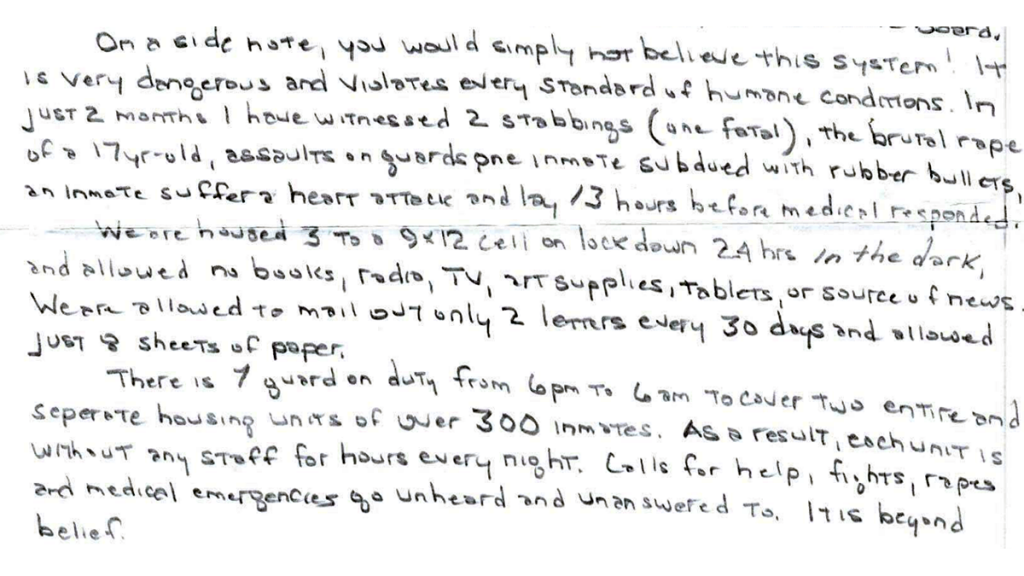 Board.
On a side note, you would simply not believe this system! It
is very dangerous and violates every standard of humane conditions. In
just 2 months I have witnessed 2 stabbings (one fatal), the brutal rape
of a 17yr-old, assaults on guards, one inmate subdued with rubber bullets,
an inmate suffer a heart attack and lay 13 hours before medical responded.
We are housed 3 to a 9x12 cell on lock down 24 hrs in the dark,
and allowed no books, radio, TV, art supplies, tablets, or source of news.
We are allowed to mail out only 2 letters every 30 days and allowed
just 8 sheets of paper.
There is 1 guard on duty from 6pm to 6am to cover two entire and
seperate housing units of over 300 inmates. As a result, each unit is
without any staff for hours every night. Calls for help, fights, rapes
and medical emergencies go unheard and unanswered to. It is beyond
belief.